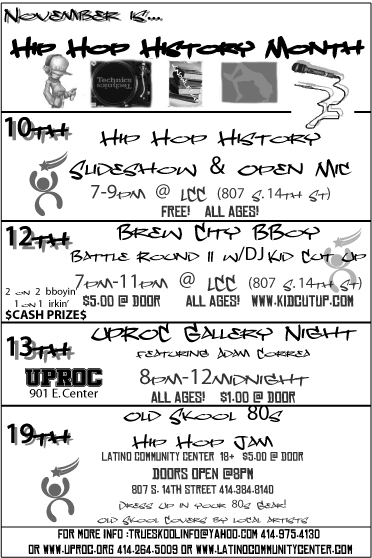 November is...
Hip Hop History Month
Technics
10th
Hip Hop History
Slideshow & Open Mic
7-9pm @ LCC (807 S. 14th St)
FREE! ALL AGES!
12th
Brew City BBoy
Battle Round II w/DJ Kid Cut Up
2 on 2 bboyin'
1 on 1 irkin'
$CASH PRIZE$
7pm-11pm @ LCC (807 S. 14th St)
$5.00 @ DOOR ALL AGES! WWW.KIDCUTUP.COM
13th
UPROC Gallery Night
featuring Adam Correa
UPROC
901 E. Center
8pm-12midnight
ALL AGES! $1.00 @ DOOR
19th
Old Skool 80s
Hip Hop Jam
LATINO COMMUNITY CENTER 18+ $5.00 @ DOOR
DOORS OPEN @8PM
807 S. 14TH STREET 414.384.8140
Dress up in your 80s Gear!
Old Skool Covers by local artists
FOR MORE INFO :TRUESKOOLINFO@YAHOO.COM 414-975-4130
OR WWW.UPROC.ORG 414-264-5009 OR WWW.LATINOCOMMUNITYCENTER.COM